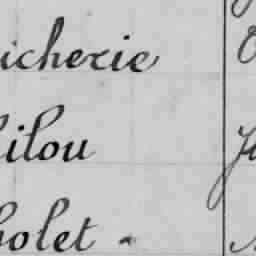 icherie
ilou
holet